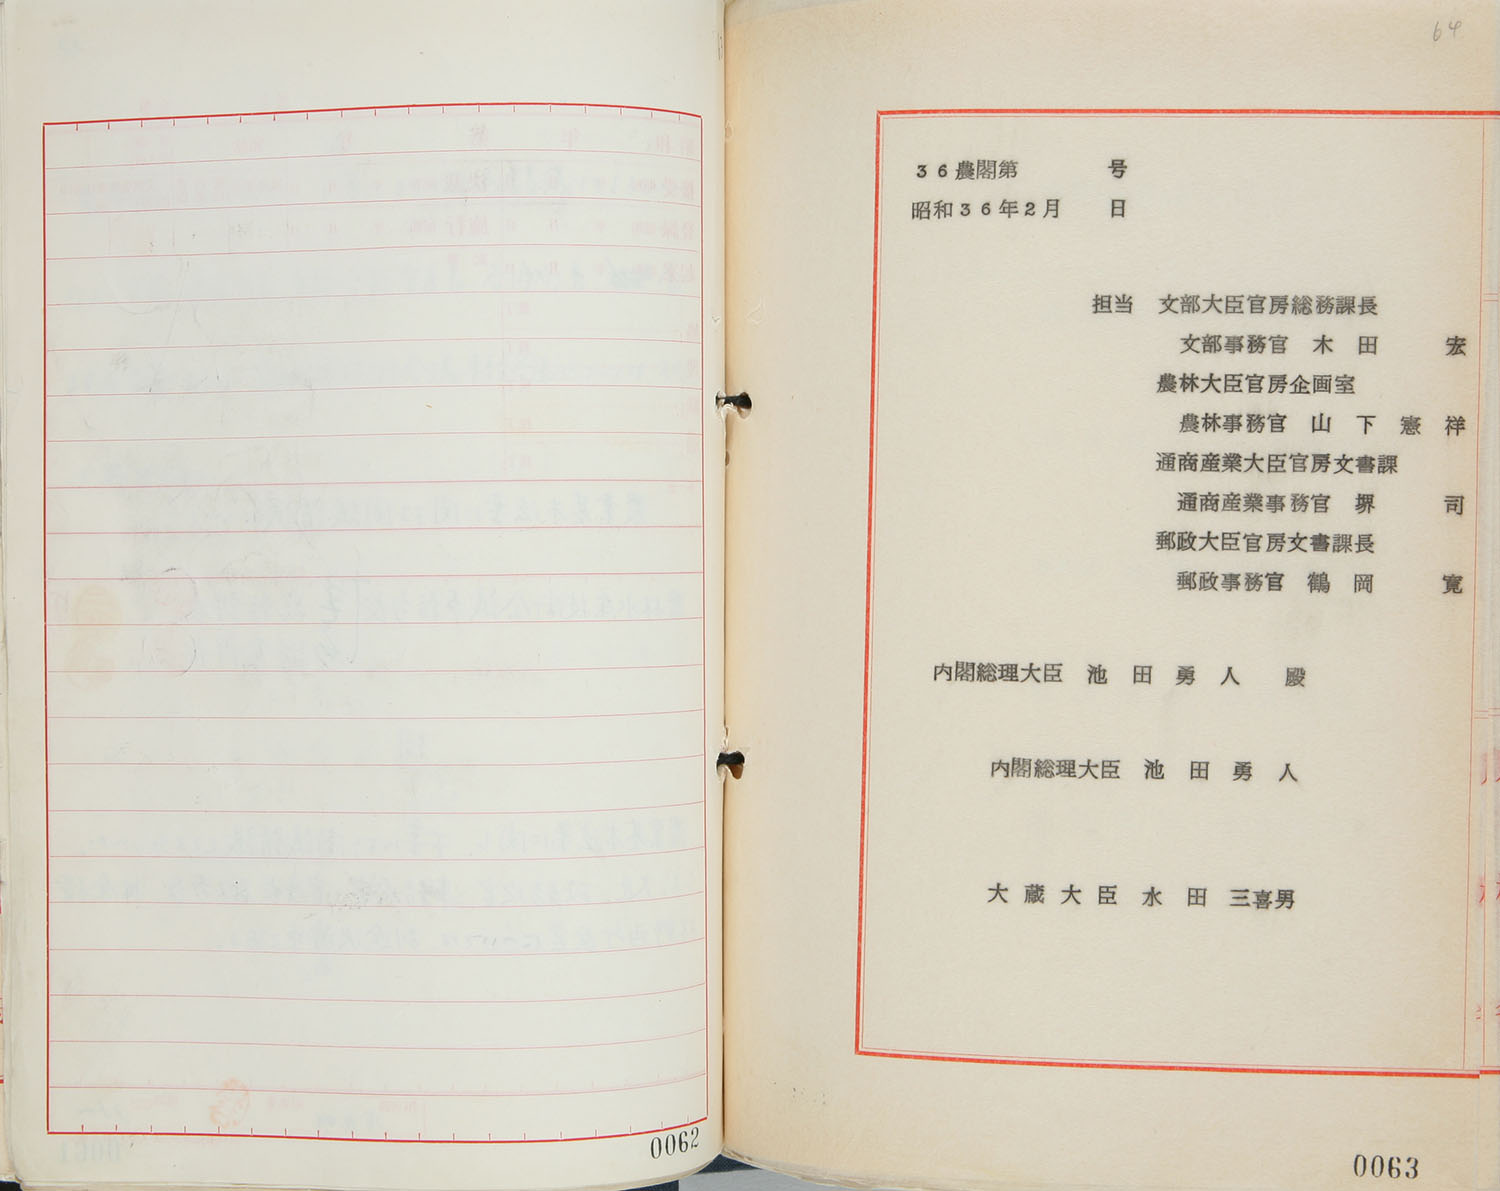 0062
64
36農閣第　　　号
昭和36年2月　　日
担当　文部大臣官房総務課長
文部事務官　木　田　　　宏
農林大臣官房企画室
農林事務官　山　下　憲　祥
通商産業大臣官房文書課
通商産業事務官　堺　　　司
郵政大臣官房文書課長
郵政事務官　鶴　岡　　　寛
内閣総理大臣　池　田　勇　人　　殿
内閣総理大臣　池　田　勇　人
大　蔵　大　臣　水　田　三喜男
0063